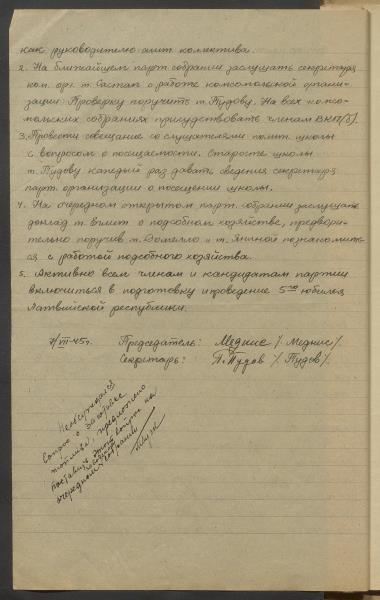 как руководителю полит коллектива.
2. На ближайшем парт собрании заслушать секретаря
ком. орг. т. о работе комсомольской органи-
зации. Проверку поручить т. Пудову. На всех комсо-
мольских собраниях присутствовать членам ВКП(б).
3. Провести совещание со слушателями полит. школы
с вопросом о посещаемости. Старосте школы
т. Пудову каждый раз давать сведения секретарю
парт. организации о посещении школы.
4. На очередном открытом парт. собрании заслушать
доклад т. о подсобном хозяйстве, предвари-
тельно поручив т. и т. познакомить-
ся с работой подсобного хозяйства.
5. Активно всем членам и кандидатам партии
включиться в подготовку и проведение 5го юбилея
Латвийской республики.
VII-45г. Председатель: Меднис /Меднис/.
Секретарь: П. Пудов /Пудов/.
Необсуждался
вопрос о заготовке
топлива, предложено
поставить этот вопрос на
очередном собрании